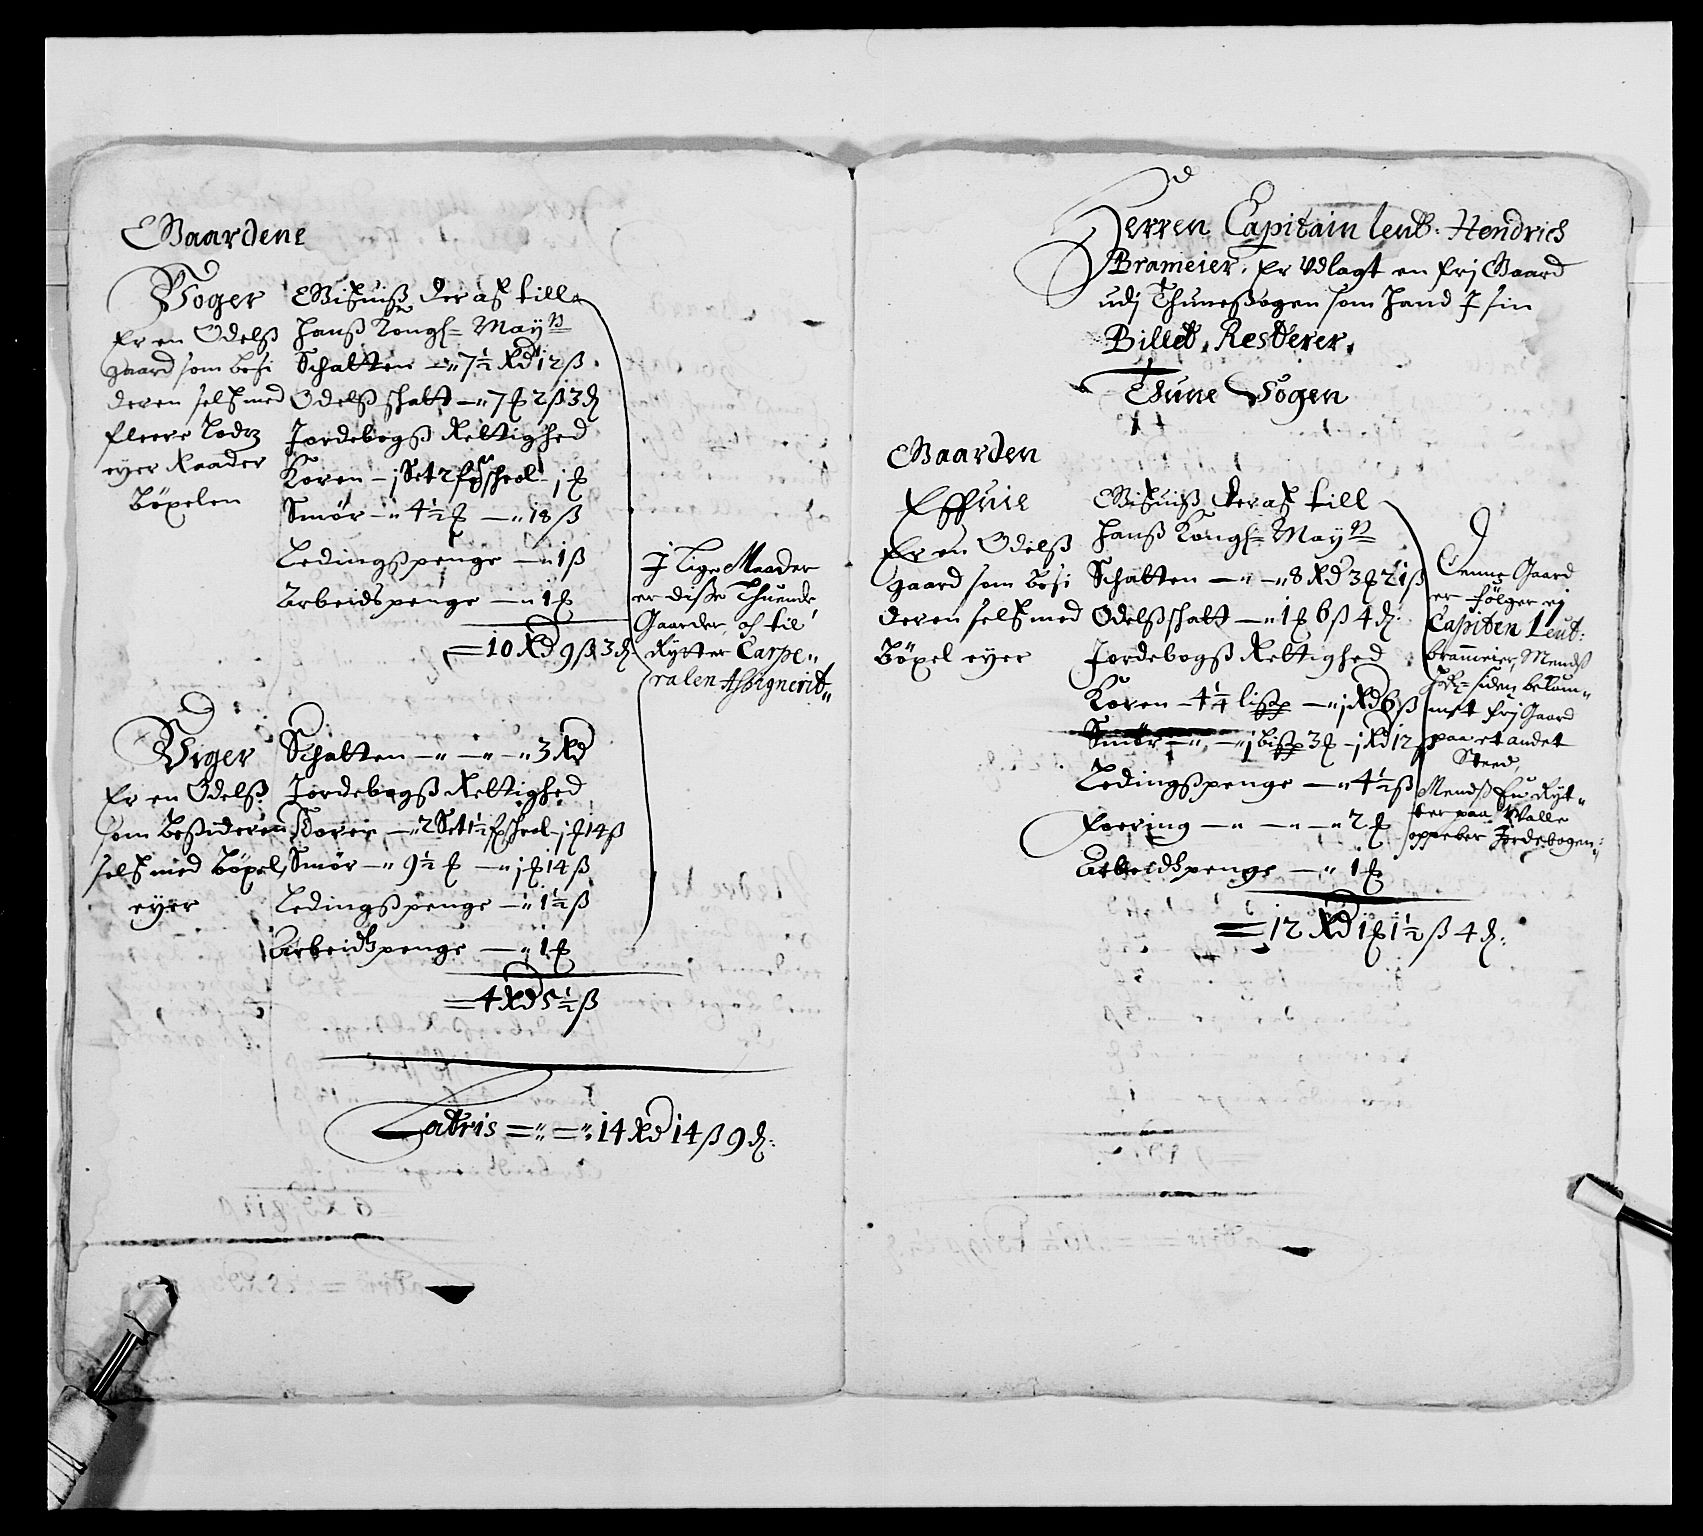 Gaardene
Soger
Er en Odelß
gaard som besi
deren self med
fleere Lodz
eyer Raader
Böxelen
Gifuiß der af till
Hanß Kongl: Mayts
Schatten — 7½ Rd 12 ß
Odelß schatt — 7 ß 3 d
Jordebogß Rettighed
Koren — j Set 2 scheel
Smör — 4½ — 18 ß
Ledingßpenge — 1 ß
Arbeidspenge — 1
= 10 Rd 9 ß 3 d
J Lige Maader
er disse Thuende
Gaarder, af til
Rytter Carpe-
ralen Assignerit
Viger
Er en Odelß
som Besideren
self med Böxel
eyer
Schatten — 3 Rd
Jordebogß Rettighed
Koren — 2 Set 1½ scheel — j 14 ß
Smör — 9½ — j 14 ß
Ledingßpenge — 1½ ß
Arbeidzpenge — 1
= 4 Rd 5½ ß
Latris = = 14 Rd 14 ß 9 d:
Herren Capitain leut: Hendrich
Brameier, Er Vdlagt en frj Gaard
udj Thuneßogen som hand J sin
Billet, Resterer.
Thune Sogen
Gaarden
Effuie
Er en Odelß
gaard som besi
deren self med
Böxel eyer
Gifuiß der af till
Hanß Kongl: Mayts
Schatten — 8 Rd 3 21 ß
Odelßschatt — 1 6 ß 4 d:
Jordebogß Rettighed
Koren — 4¼ lispd — j Rd 6 ß
Smör — j bispd 3 — j Rd 12 ß
Ledingßpenge — 4½ ß
Foering — 2
Arbeidzpenge — 1
= 12 Rd 1 1½ ß 4 d:
Denne Gaard
er følger ej
Capiten Leut:
brammeier, Mendß
siden bekom-
met frj Gaard
paa et andet
Steed,
Mendß En Ryt-
ter paa Walle
oppeber Jordebogen